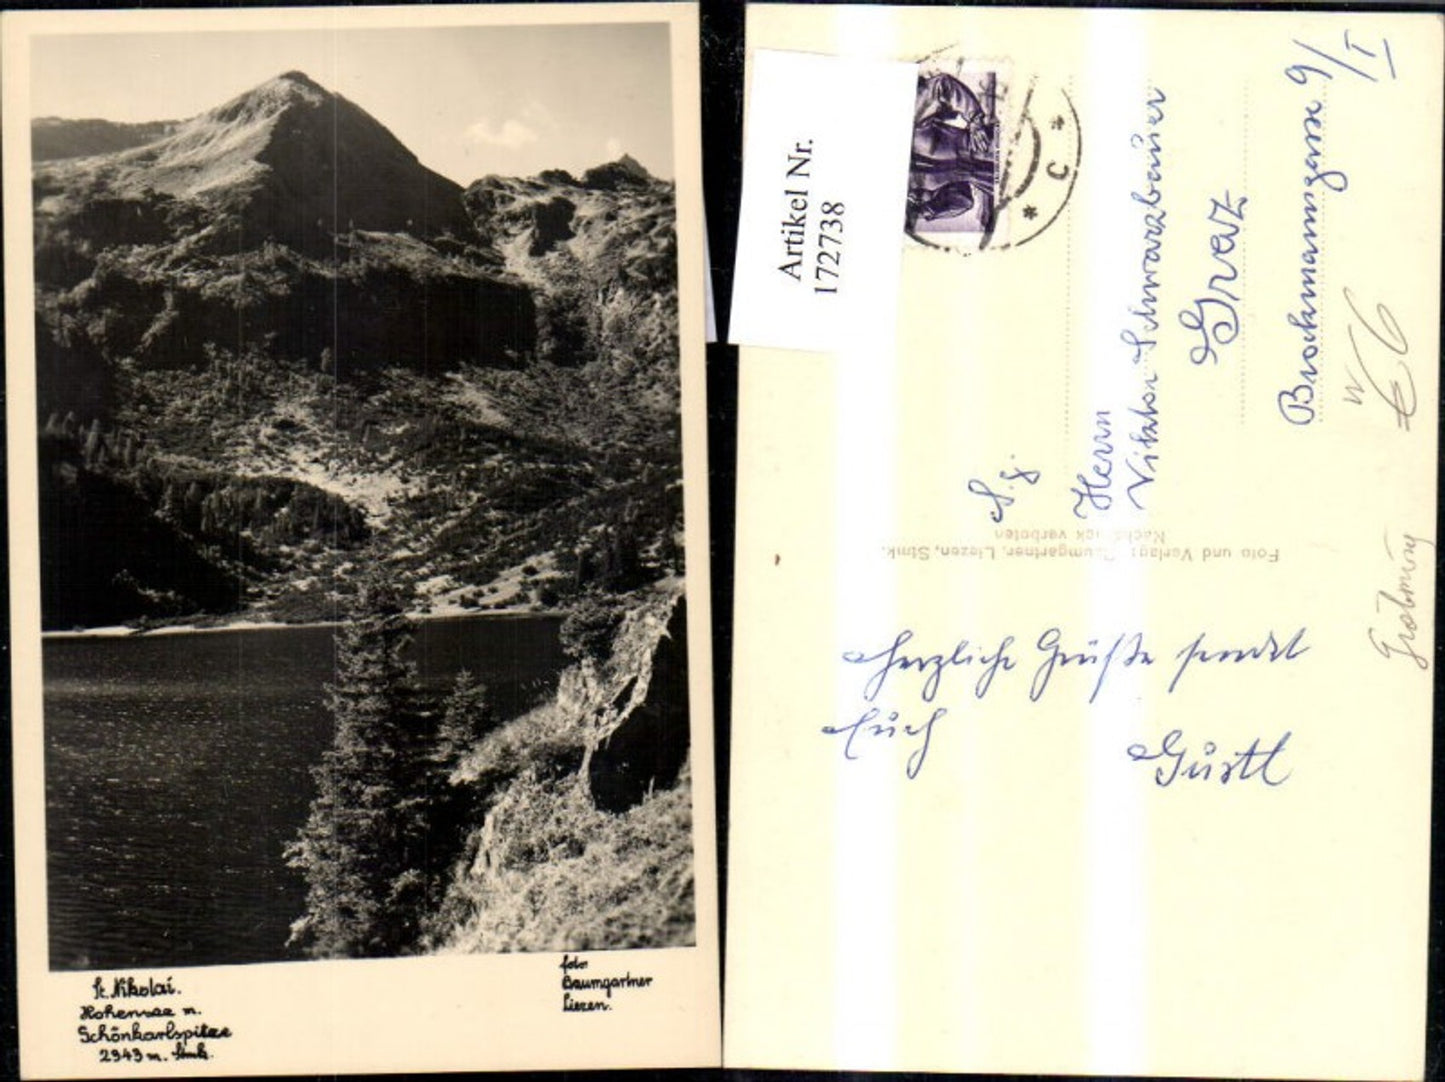 St. Nikolai.
Hohensee m.
Schönkarlspitze
2343 m. Stmk.
foto
Baumgartner
Liezen.
Artikel Nr.
172738
C
S. g.
Herrn
Viktor Schwarzbauer
Graz
Brockmanngasse 9/I
€ 6
Gröbming
Foto und Verlag: Baumgartner, Liezen, Stmk.
Nachdruck verboten
Herzliche Grüße sendet
Euch
Gustl